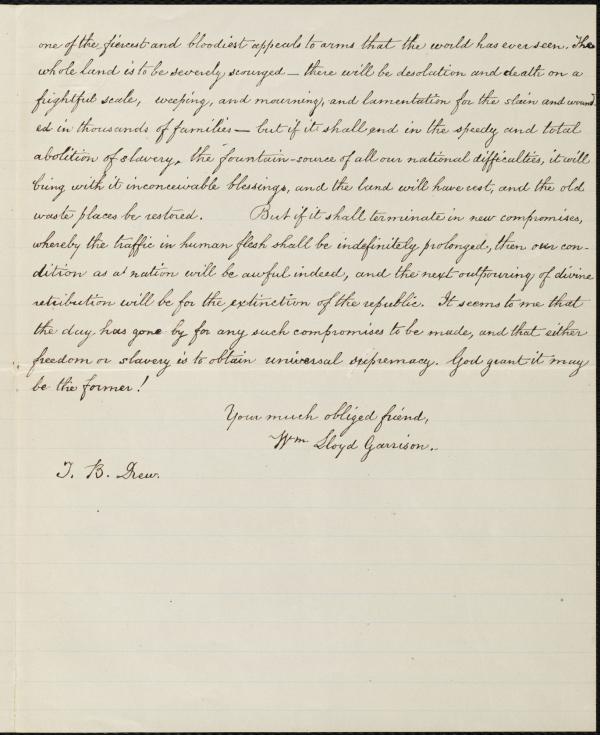 one of the fiercest and bloodiest appeals to arms that the world has ever seen. The
whole land is to be severely scourged — there will be desolation and death on a
frightful scale, weeping, and mourning, and lamentation for the slain and wound-
ed in thousands of families — but if it shall end in the speedy and total
abolition of slavery, the fountain-source of all our national difficulties, it will
bring with it inconceivable blessings, and the land will have rest, and the old
waste places be restored. But if it shall terminate in new compromises,
whereby the traffic in human flesh shall be indefinitely prolonged, then our con-
dition as a nation will be awful indeed, and the next outpouring of divine
retribution will be for the extinction of the republic. It seems to me that
the day has gone by for any such compromises to be made, and that either
freedom or slavery is to obtain universal supremacy. God grant it may
be the former!
Your much obliged friend,
Wm Lloyd Garrison.
T. B. Drew.